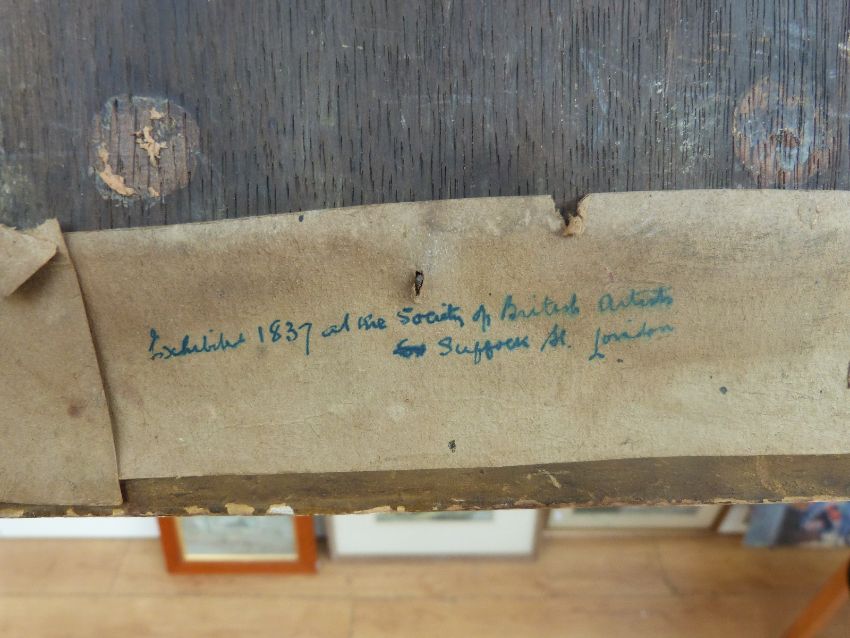 Exhibited 1837 at the Society of British Artists
Suffolk St. London